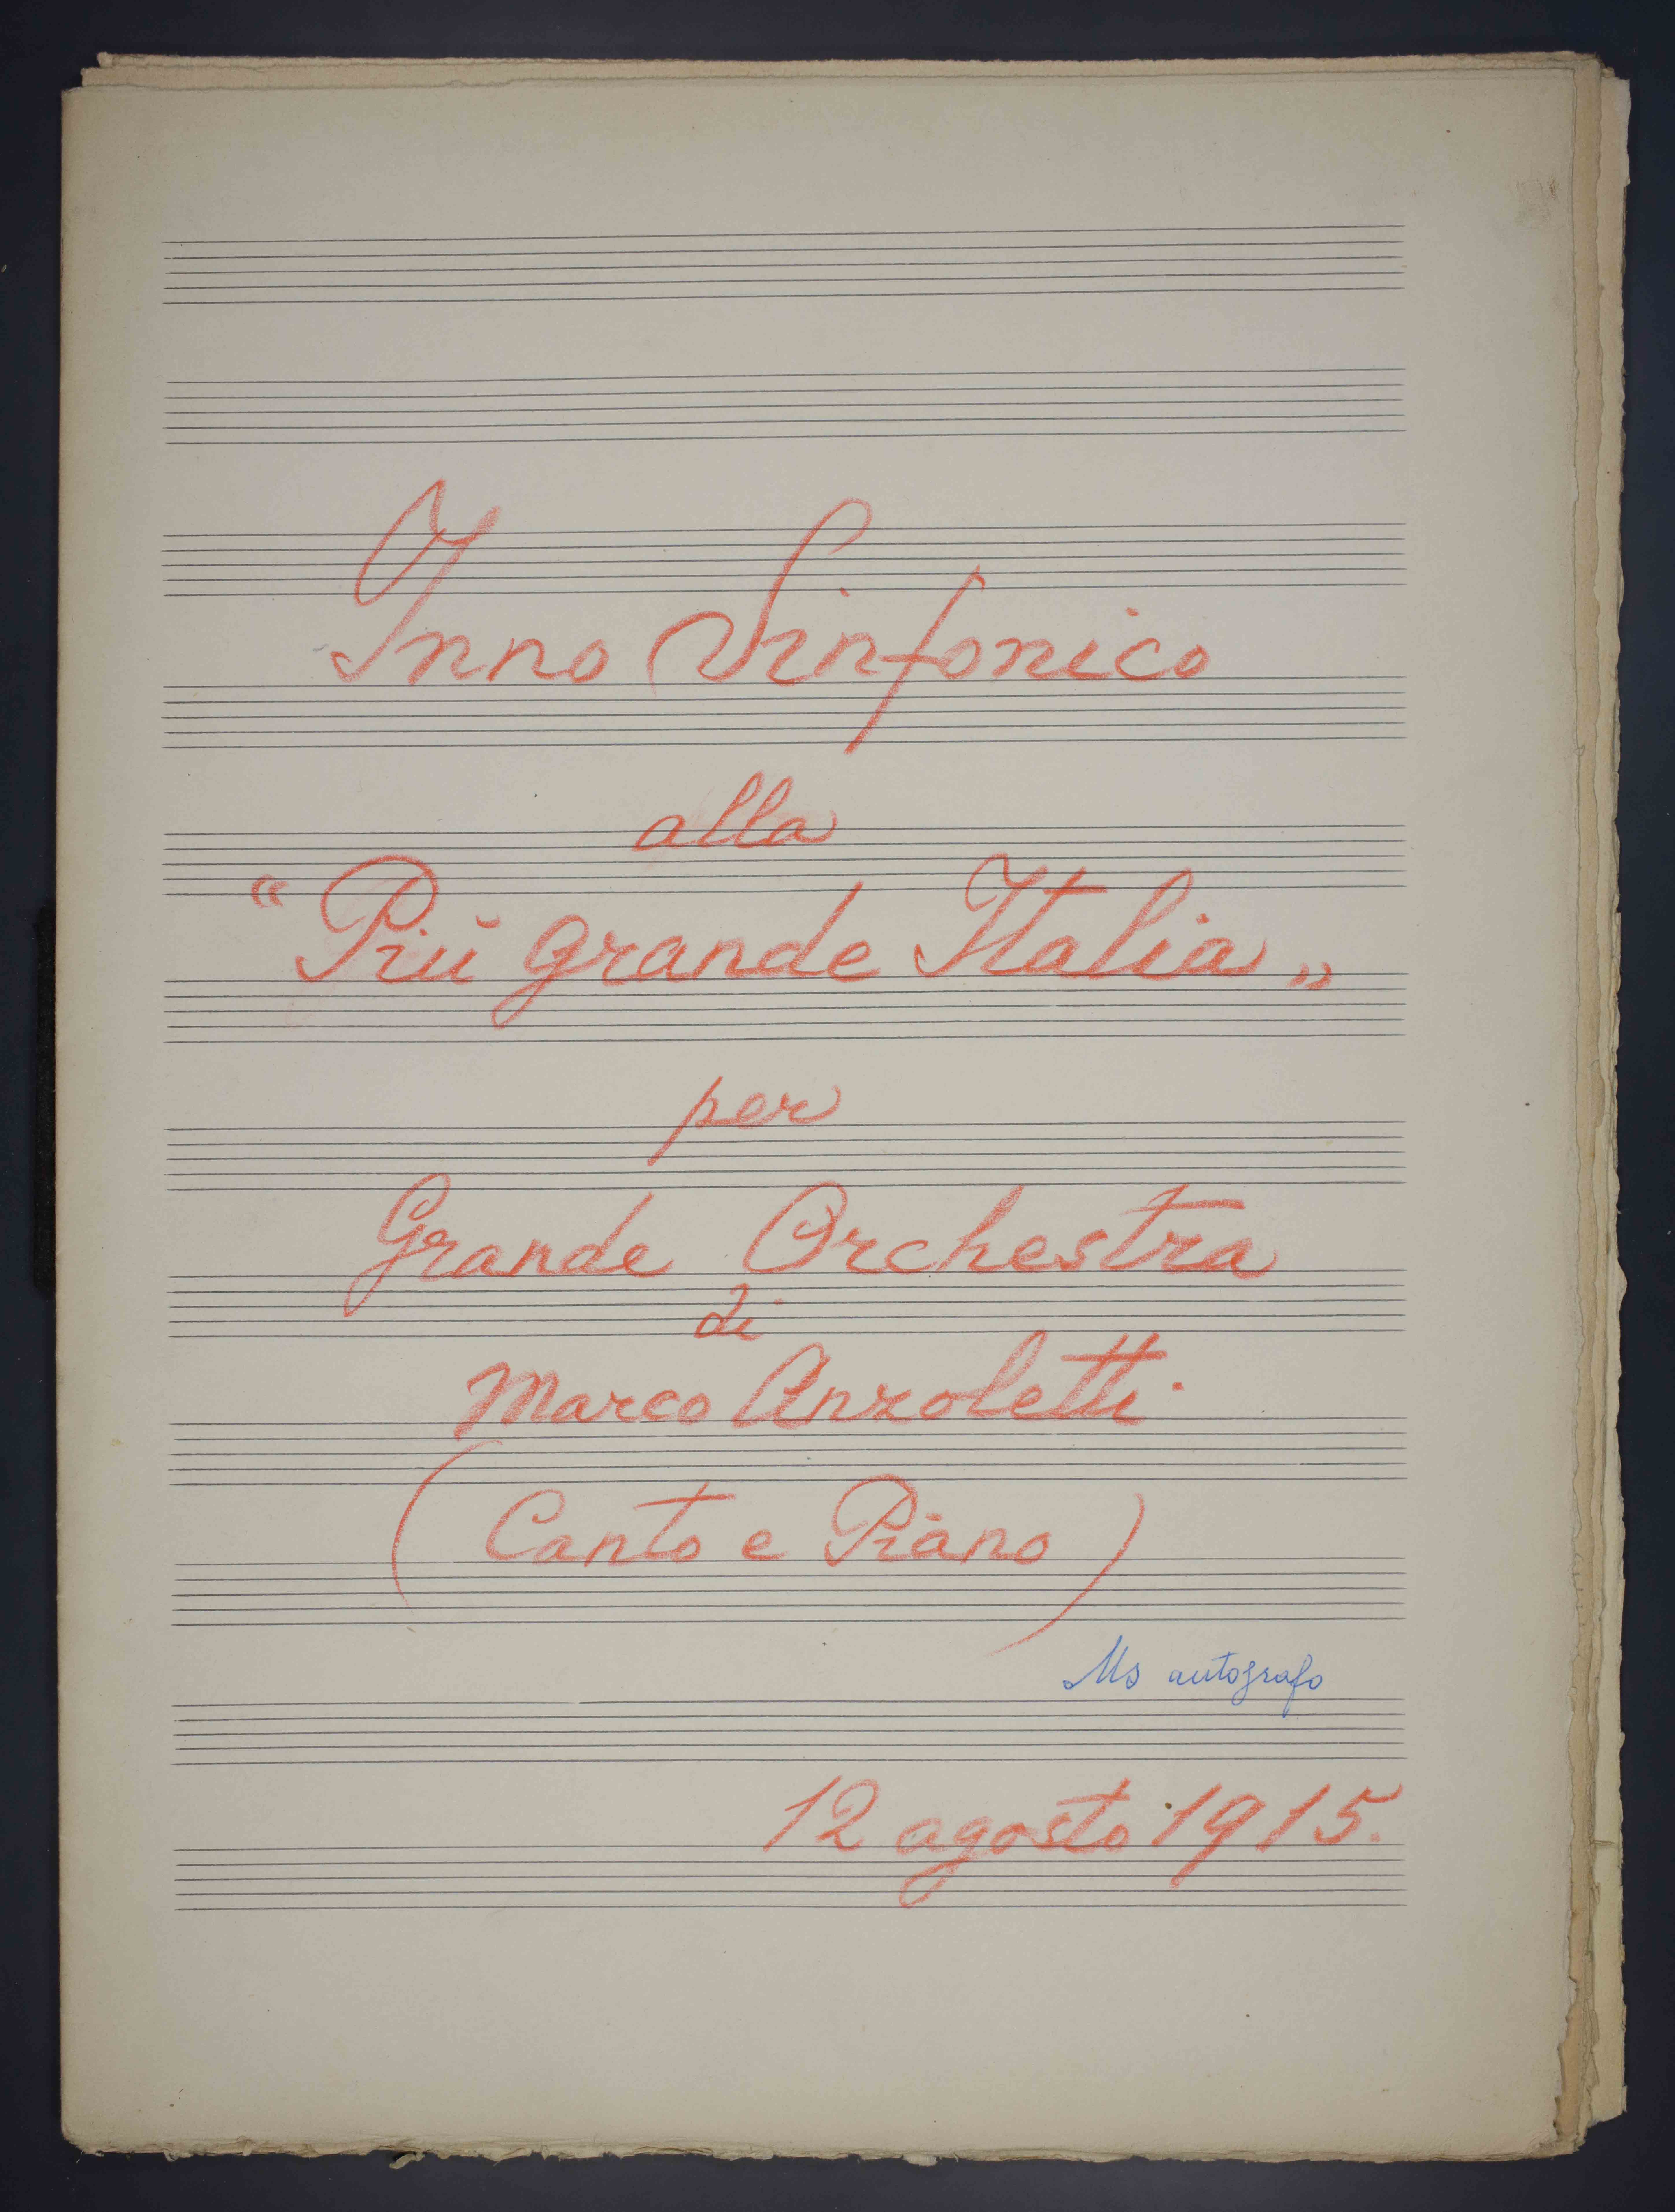 Inno Sinfonico
alla
“Più grande Italia„
per
Grande Orchestra
di
Marco Anzoletti.
(Canto e Piano)
Ms autografo
12 agosto 1915.